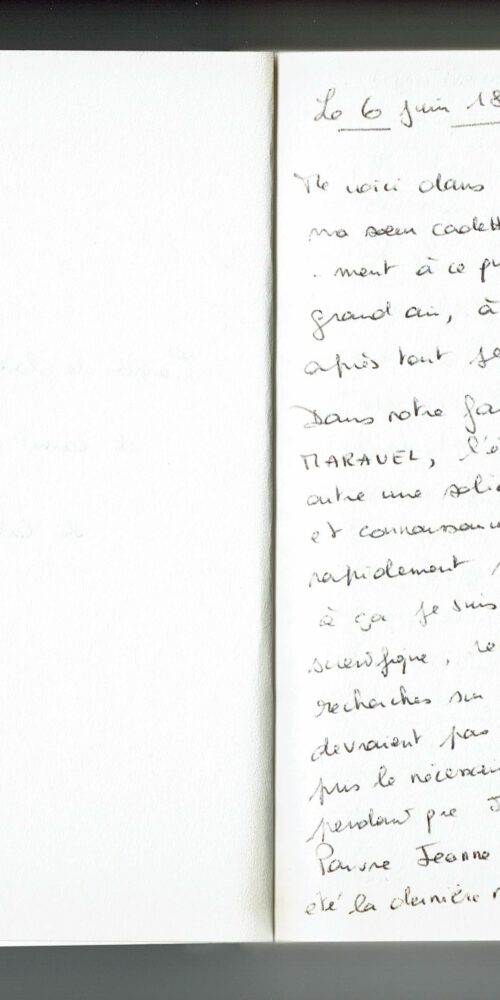 Le 6 juin 18
Me voici dans
ma soeur cadett
-ment à ce qu
grand air, à
après tout je
Dans notre fa
MARAVEL, l'é
outre une solid
et connaissance
rapidement
à ça je suis
scientifique, re
recherches sur
devraient pas
pris le nécessair
pendant que J
Pauvre Jeanne
été la dernière